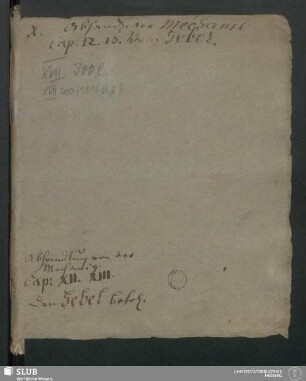 X. Abhandl. der Mechanic
Cap: 12. 13. Vom Hebel.
XVII 300 f
XVII 300
Abhandlung von der
Mechanic
Cap: XII. XIII.
Den Hebel betr.
SLUB
Wir führen Wissen.
UNIVERSITÄTSBIBLIOTHEK
FREIBERG